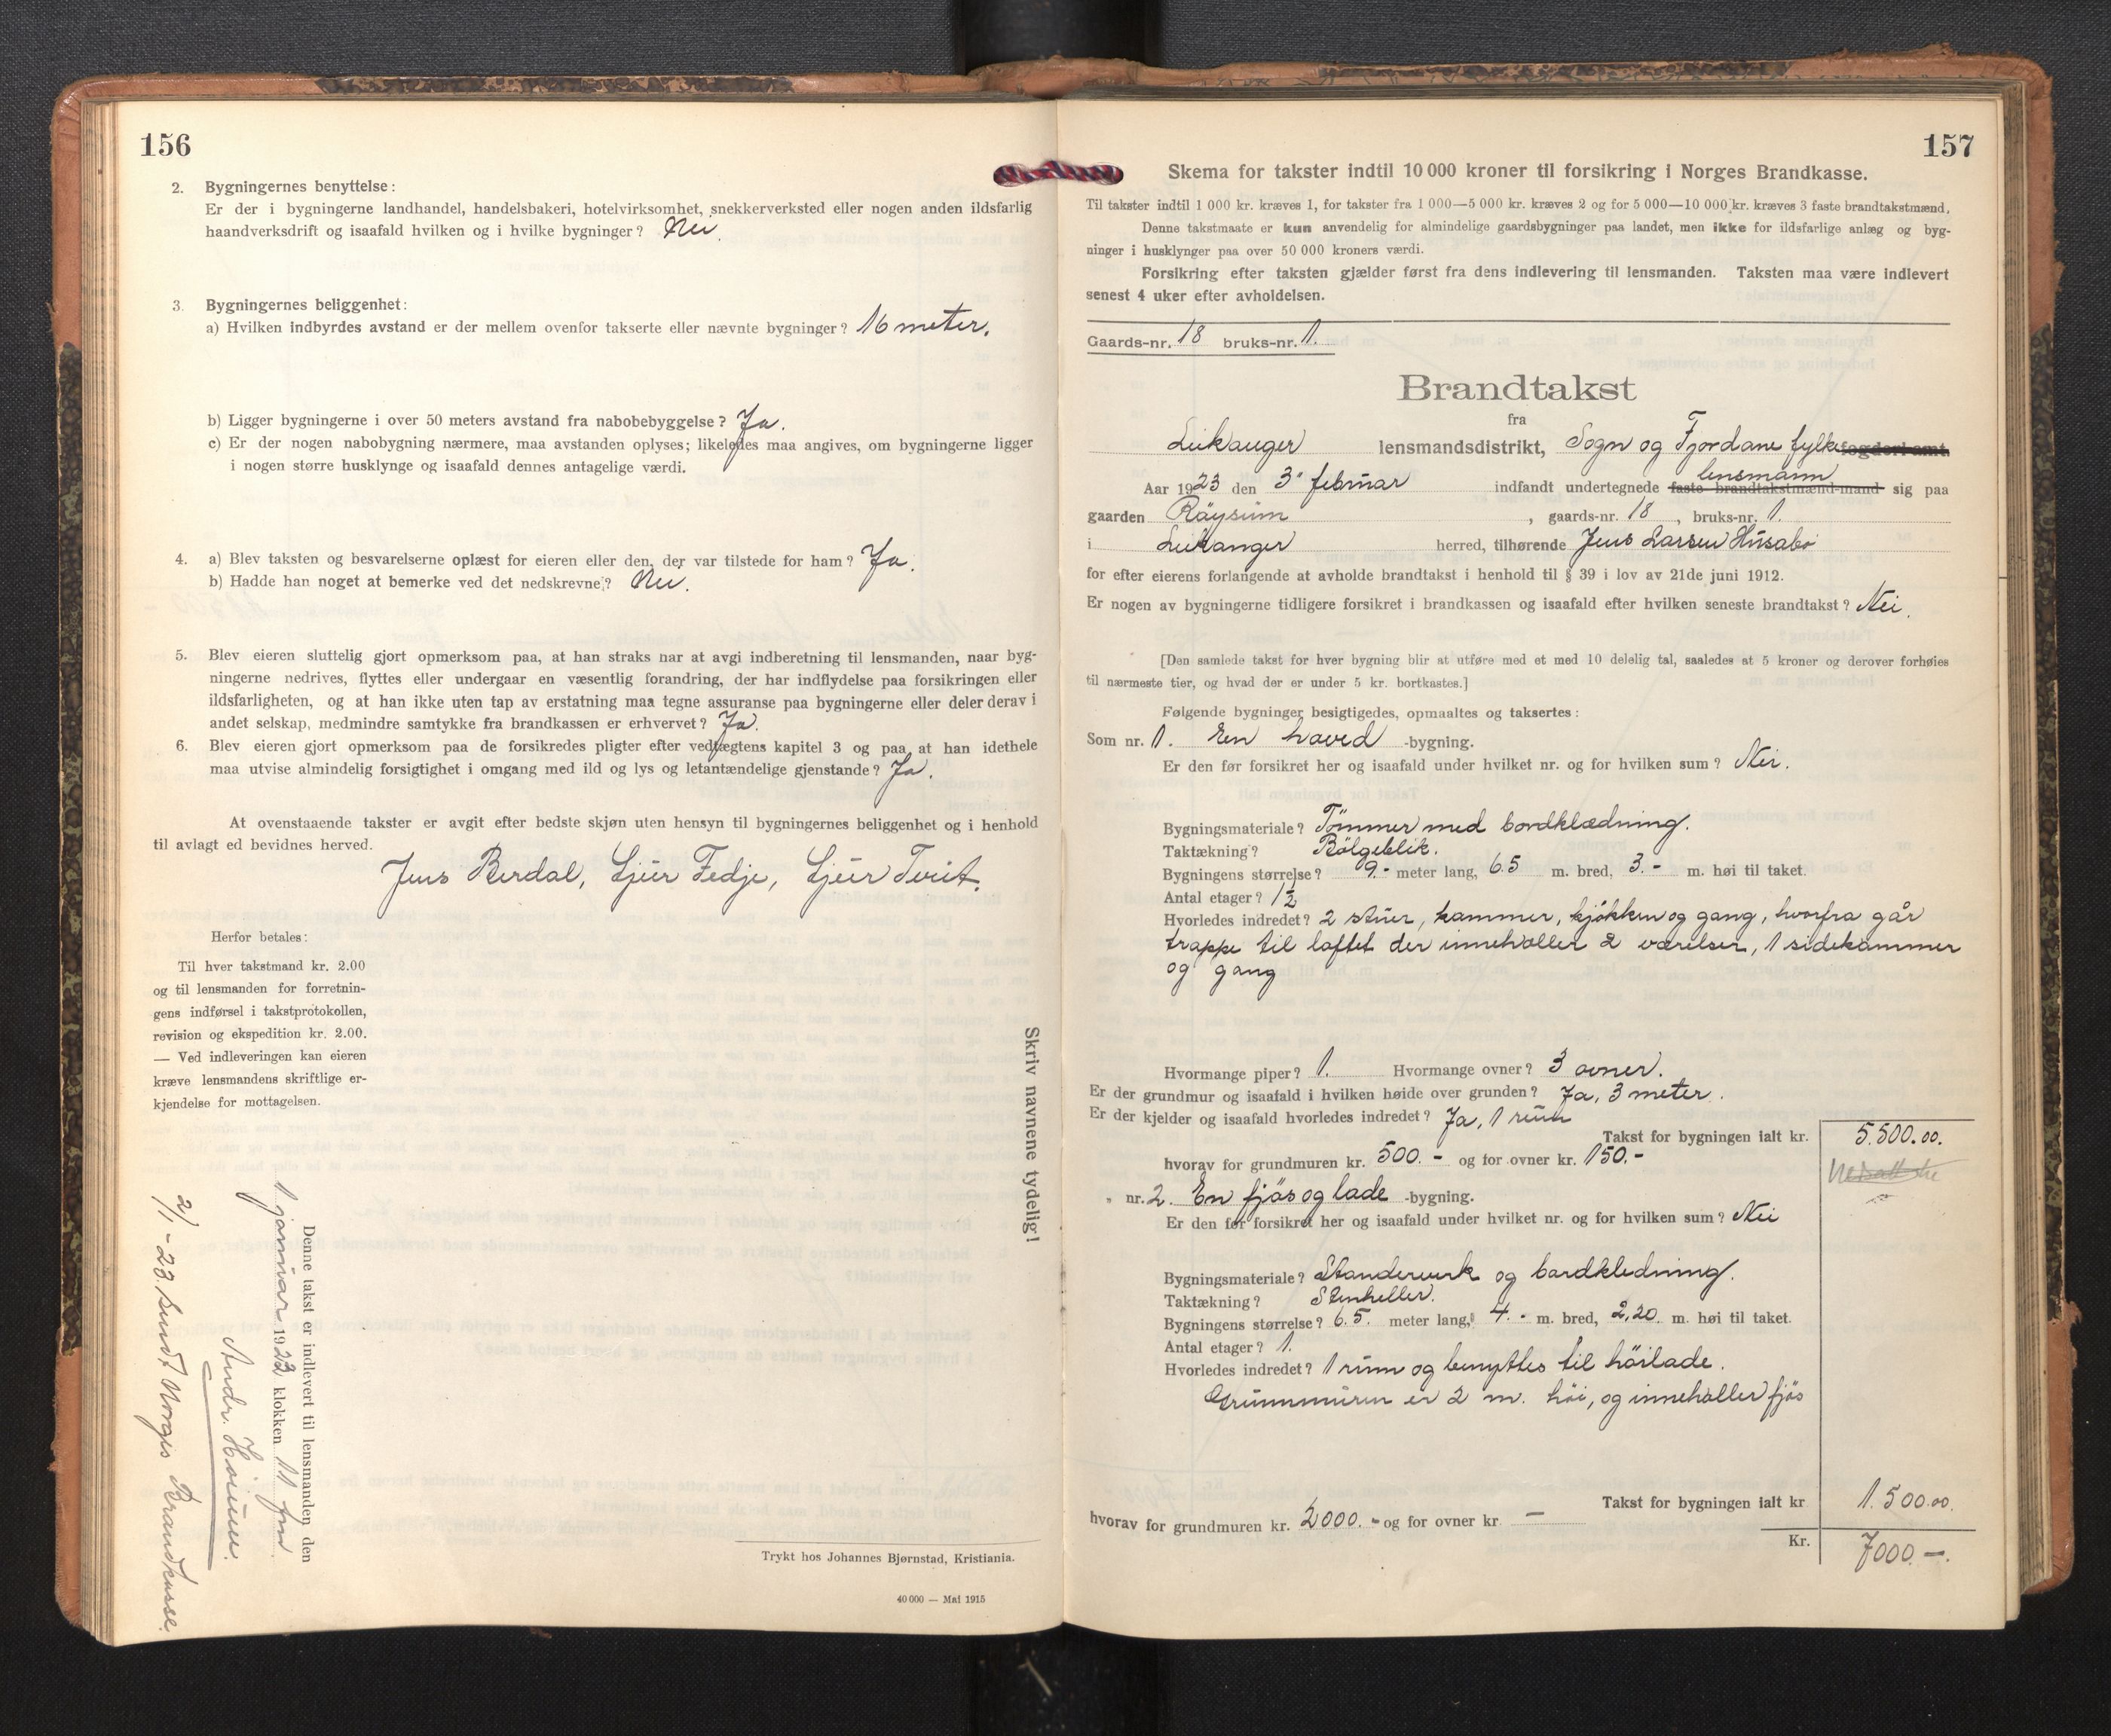 156
2. Bygningernes benyttelse:
Er der i bygningerne landhandel, handelsbakeri, hotelvirksomhet, snekkerverksted eller nogen anden ildsfarlig
haandverksdrift og isaafald hvilken og i hvilke bygninger? Nei.
3. Bygningernes beliggenhet:
a) Hvilken indbyrdes avstand er der mellem ovenfor takserte eller nævnte bygninger? 16 meter.
b) Ligger bygningerne i over 50 meters avstand fra nabobebyggelse? Ja.
c) Er der nogen nabobygning nærmere, maa avstanden oplyses; likeledes maa angives, om bygningerne ligger
i nogen større husklynge og isaafald dennes antagelige værdi.
4. a) Blev taksten og besvarelserne oplæst for eieren eller den, der var tilstede for ham? Ja.
b) Hadde han noget at bemerke ved det nedskrevne? Nei.
5. Blev eieren sluttelig gjort opmerksom paa, at han straks nar at avgi indberetning til lensmanden, naar byg-
ningerne nedrives, flyttes eller undergaar en væsentlig forandring, der har indflydelse paa forsikringen eller
ildsfarligheten, og at han ikke uten tap av erstatning maa tegne assuranse paa bygningerne eller deler derav i
andet selskap, medmindre samtykke fra brandkassen er erhvervet? Ja.
6. Blev eieren gjort opmerksom paa de forsikredes pligter efter vedtægtens kapitel 3 og paa at han idethele
maa utvise almindelig forsigtighet i omgang med ild og lys og letantændelige gjenstande? Ja.
At ovenstaaende takster er avgit efter bedste skjøn uten hensyn til bygningernes beliggenhet og i henhold
til avlagt ed bevidnes herved.
Jens Berdal, Sjur Fedje, Sjur Tveit.
Herfor betales:
Til hver takstmand kr. 2.00
og til lensmanden for forretnin-
gens indførsel i takstprotokollen,
revision og ekspedition kr. 2.00.
— Ved indleveringen kan eieren
kræve lensmandens skriftlige er-
kjendelse for mottagelsen.
Skriv navnene tydelig!
Denne takst er indlevert til lensmanden den
1 januar 1923 klokken 11 fm
Andr. Hoium.
2/1-23. sendt Norges Brandkasse.
Trykt hos Johannes Bjørnstad, Kristiania.
40 000 — Mai 1915
157
Skema for takster indtil 10 000 kroner til forsikring i Norges Brandkasse.
Til takster indtil 1 000 kr. kræves 1, for takster fra 1 000—5 000 kr. kræves 2 og for 5 000—10 000 kr. kræves 3 faste brandtakstmænd.
Denne takstmaate er kun anvendelig for almindelige gaardsbygninger paa landet, men ikke for ildsfarlige anlæg og byg-
ninger i husklynger paa over 50 000 kroners værdi.
Forsikring efter taksten gjælder først fra dens indlevering til lensmanden. Taksten maa være indlevert
senest 4 uker efter avholdelsen.
Gaards-nr. 18 bruks-nr. 1.
Brandtakst
fra
Leikanger lensmandsdistrikt, Sogn og Fjordane fylke fogderi amt.
lensmann
Aar 1923 den 3' februar indfandt undertegnede faste brandtakstmænd-mand sig paa
gaarden Röysum, gaards-nr. 18, bruks-nr. 1.
i Leikanger herred, tilhørende Jens Larsen Husabö
for efter eierens forlangende at avholde brandtakst i henhold til § 39 i lov av 21de juni 1912.
Er nogen av bygningerne tidligere forsikret i brandkassen og isaafald efter hvilken seneste brandtakst? Nei.
[Den samlede takst for hver bygning blir at utføre med et med 10 delelig tal, saaledes at 5 kroner og derover forhøies
til nærmeste tier, og hvad der er under 5 kr. bortkastes.]
Følgende bygninger besigtigedes, opmaaltes og taksertes:
Som nr. 1. En hoved -bygning.
Er den før forsikret her og isaafald under hvilket nr. og for hvilken sum? Nei.
Bygningsmateriale? Tömmer med bordklædning.
Taktækning? Bölgeblik.
Bygningens størrelse? 9.- meter lang, 6.5 m. bred, 3.- m. høi til taket.
Antal etager? 1½
Hvorledes indredet? 2 stuer, kammer, kjökken og gang, hvorfra går
trappe til loftet der inneholler 2 værelser, 1 sidekammer
og gang
Hvormange piper? 1. Hvormange ovner? 3 ovner.
Er der grundmur og isaafald i hvilken høide over grunden? Ja, 3 meter.
Er der kjelder og isaafald hvorledes indredet? Ja, 1 rum
Takst for bygningen ialt kr. 5.500.00.
hvorav for grundmuren kr. 500.- og for ovner kr. 150.-
" nr. 2. En fjös og lade -bygning.
Er den før forsikret her og isaafald under hvilket nr. og for hvilken sum? Nei
Bygningsmateriale? Standerverk og bordkledning.
Taktækning? Stenheller.
Bygningens størrelse? 6.5. meter lang, 4.- m. bred, 2,20 m. høi til taket.
Antal etager? 1.
Hvorledes indredet? 1 rum og benyttes til höilade.
Grunnmuren er 2 m. höi, og inneholler fjös
Takst for bygningen ialt kr 1.500.00.
hvorav for grundmuren kr. 2000.- og for ovner kr —
Kr. 7000.-.